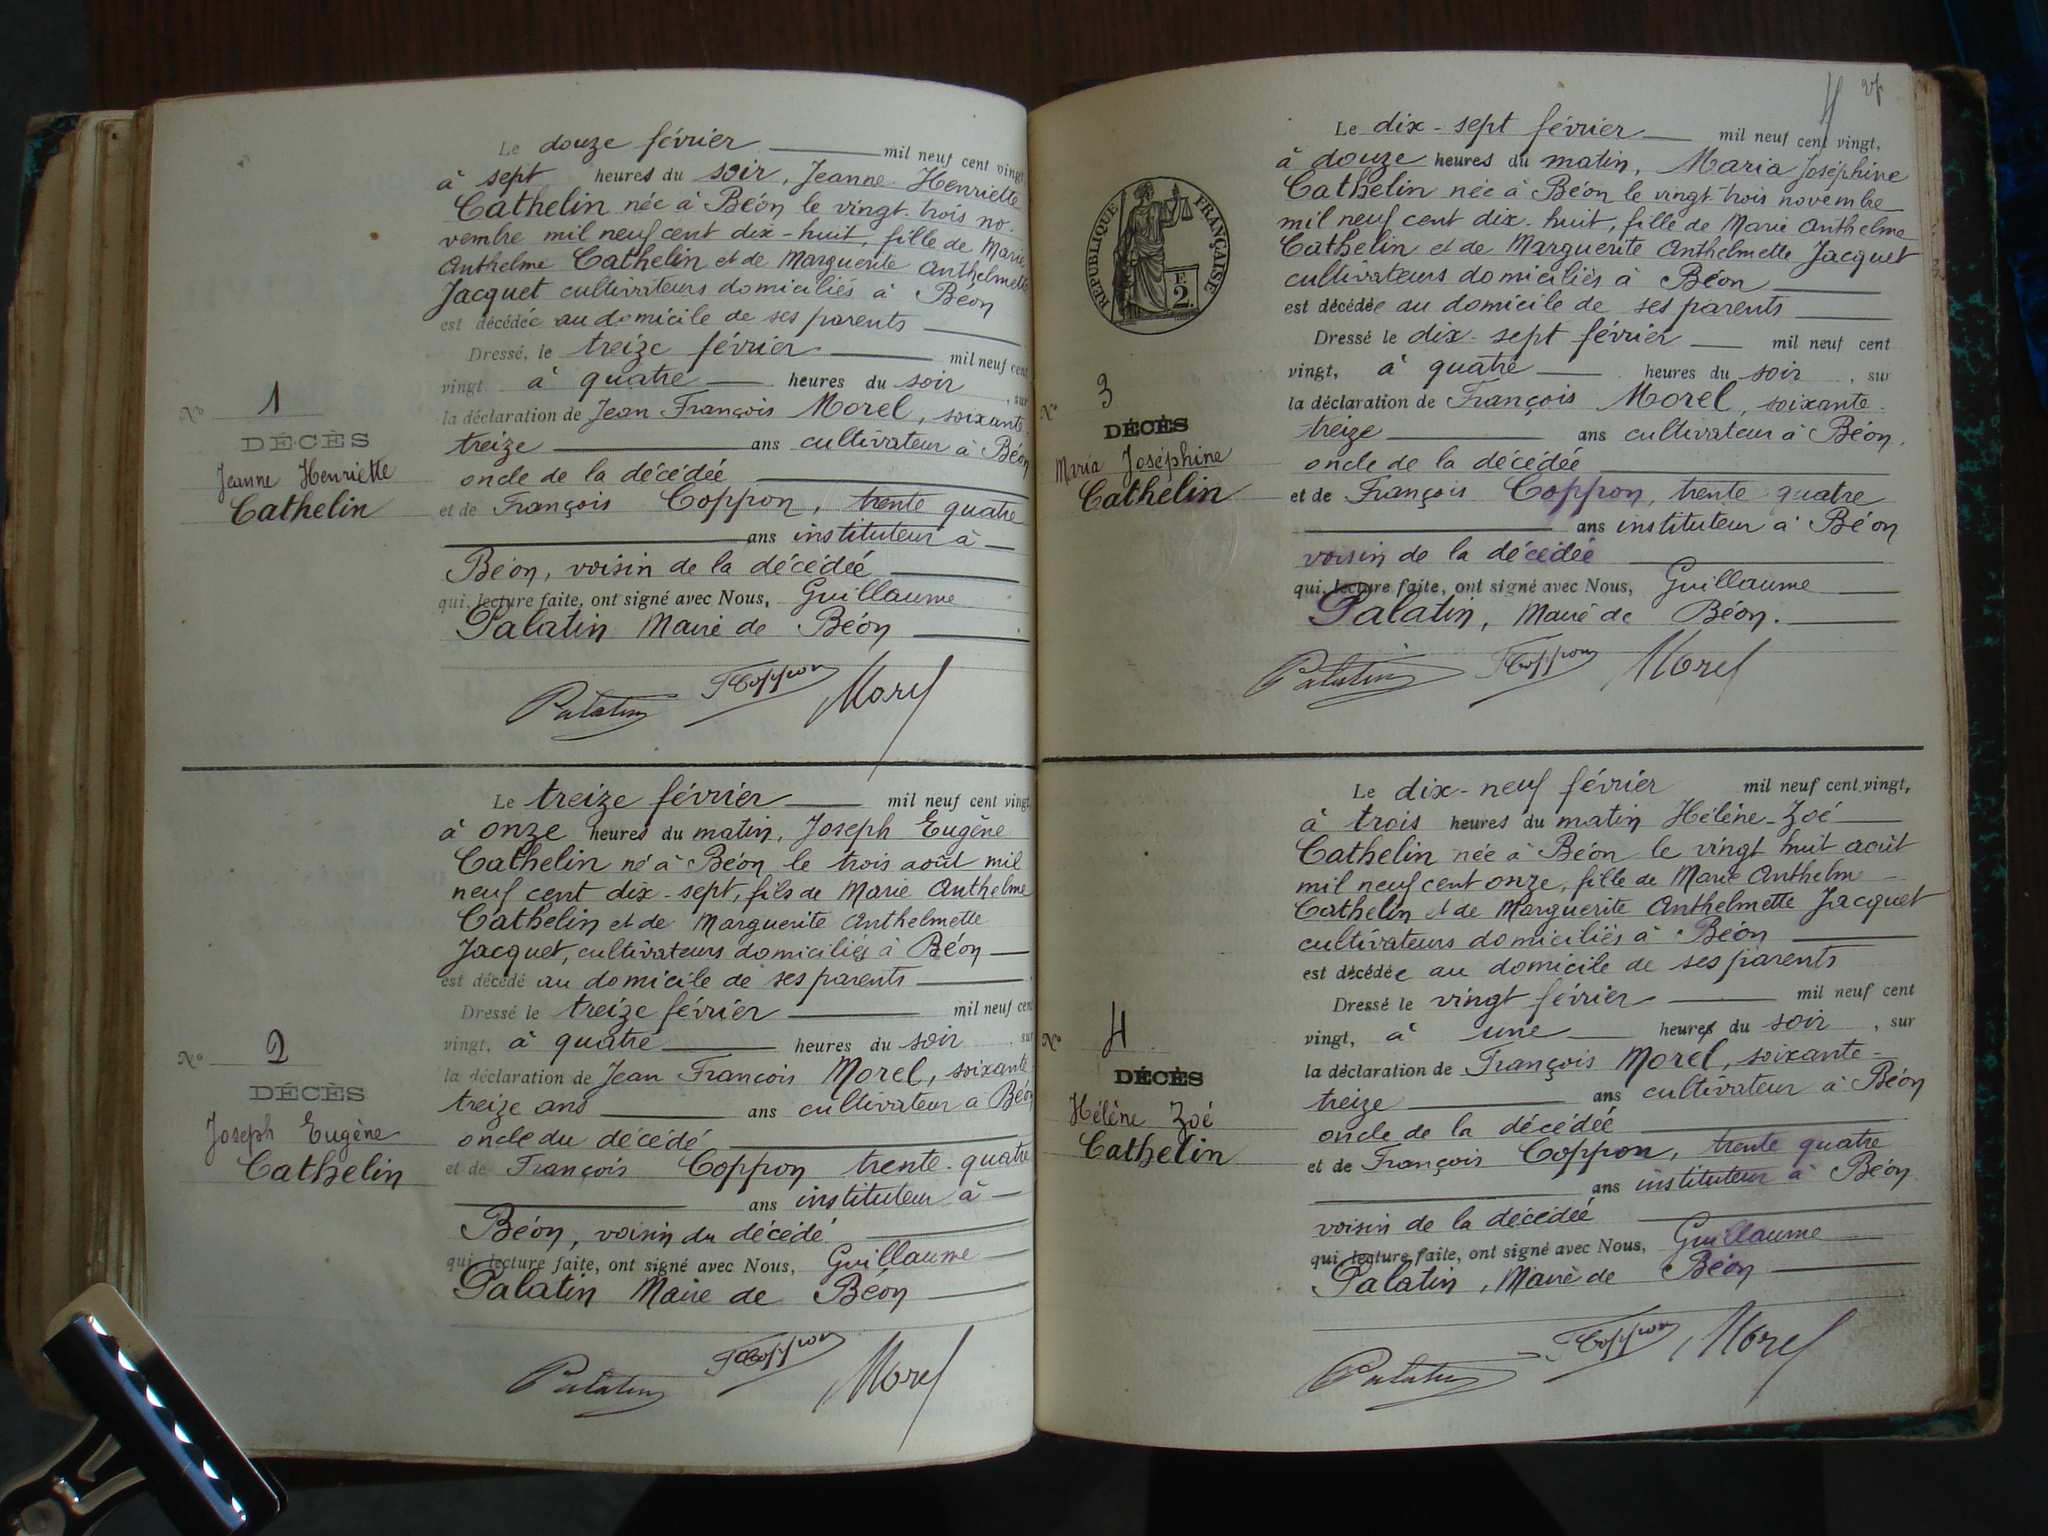 Le douze février mil neuf cent vingt
à sept heures du soir, Jeanne Henriette
Cathelin née à Béon le vingt-trois no-
vembre mil neuf cent dix-huit, fille de Marie
Anthelme Cathelin et de Marguerite Anthelmette
Jacquet cultivateurs domiciliés à Béon
est décédée au domicile de ses parents
Dressé, le treize février mil neuf cent
vingt, à quatre heures du soir, sur
la déclaration de Jean François Morel, soixante-
treize ans cultivateur à Béon
oncle de la décédée
et de François Coppon, trente quatre
ans instituteur à
Béon, voisin de la décédée
qui, lecture faite, ont signé avec Nous, Guillaume
Palatin Maire de Béon
Palatin FCoppon Morel
No 1
DÉCÈS
Jeanne Henriette
Cathelin
Le treize février mil neuf cent vingt
à onze heures du matin, Joseph Eugène
Cathelin né à Béon le trois août mil
neuf cent dix-sept, fils de Marie Anthelme
Cathelin et de Marguerite Anthelmette
Jacquet, cultivateurs domiciliés à Béon
est décédé au domicile de ses parents
Dressé le treize février mil neuf cent
vingt, à quatre heures du soir, sur
la déclaration de Jean François Morel, soixante
treize ans ans cultivateur à Béon
oncle du décédé
et de François Coppon trente-quatre
ans instituteur à
Béon, voisin du décédé
qui, lecture faite, ont signé avec Nous, Guillaume
Palatin Maire de Béon
Palatin FCoppon Morel
No 2
DÉCÈS
Joseph Eugène
Cathelin
RÉPUBLIQUE FRANÇAISE
F.
2.
Le dix-sept février mil neuf cent vingt,
à douze heures du matin, Maria Joséphine
Cathelin née à Béon le vingt-trois novembre
mil neuf cent dix-huit, fille de Marie Anthelme
Cathelin et de Marguerite Anthelmette Jacquet
cultivateurs domiciliés à Béon
est décédée au domicile de ses parents
Dressé le dix-sept février mil neuf cent
vingt, à quatre heures du soir, sur
la déclaration de François Morel, soixante-
treize ans cultivateur à Béon,
oncle de la décédée
et de François Coppon, trente quatre
ans instituteur à Béon
voisin de la décédée
qui, lecture faite, ont signé avec Nous, Guillaume
Palatin, Maire de Béon.
Palatin FCoppon Morel
No 3
DÉCÈS
Maria Joséphine
Cathelin
Le dix-neuf février mil neuf cent vingt,
à trois heures du matin Hélène-Zoé
Cathelin née à Béon le vingt huit août
mil neuf cent onze, fille de Marie Anthelm
Cathelin et de Marguerite Anthelmette Jacquet
cultivateurs domiciliés à Béon
est décédée au domicile de ses parents
Dressé le vingt février mil neuf cent
vingt, à une heure du soir, sur
la déclaration de François Morel, soixante-
treize ans cultivateur à Béon
oncle de la décédée
et de François Coppon, trente quatre
ans instituteur à Béon
voisin de la décédée
qui, lecture faite, ont signé avec Nous, Guillaume
Palatin, Maire de Béon
Palatin FCoppon Morel
No 4
DÉCÈS
Hélène Zoé
Cathelin